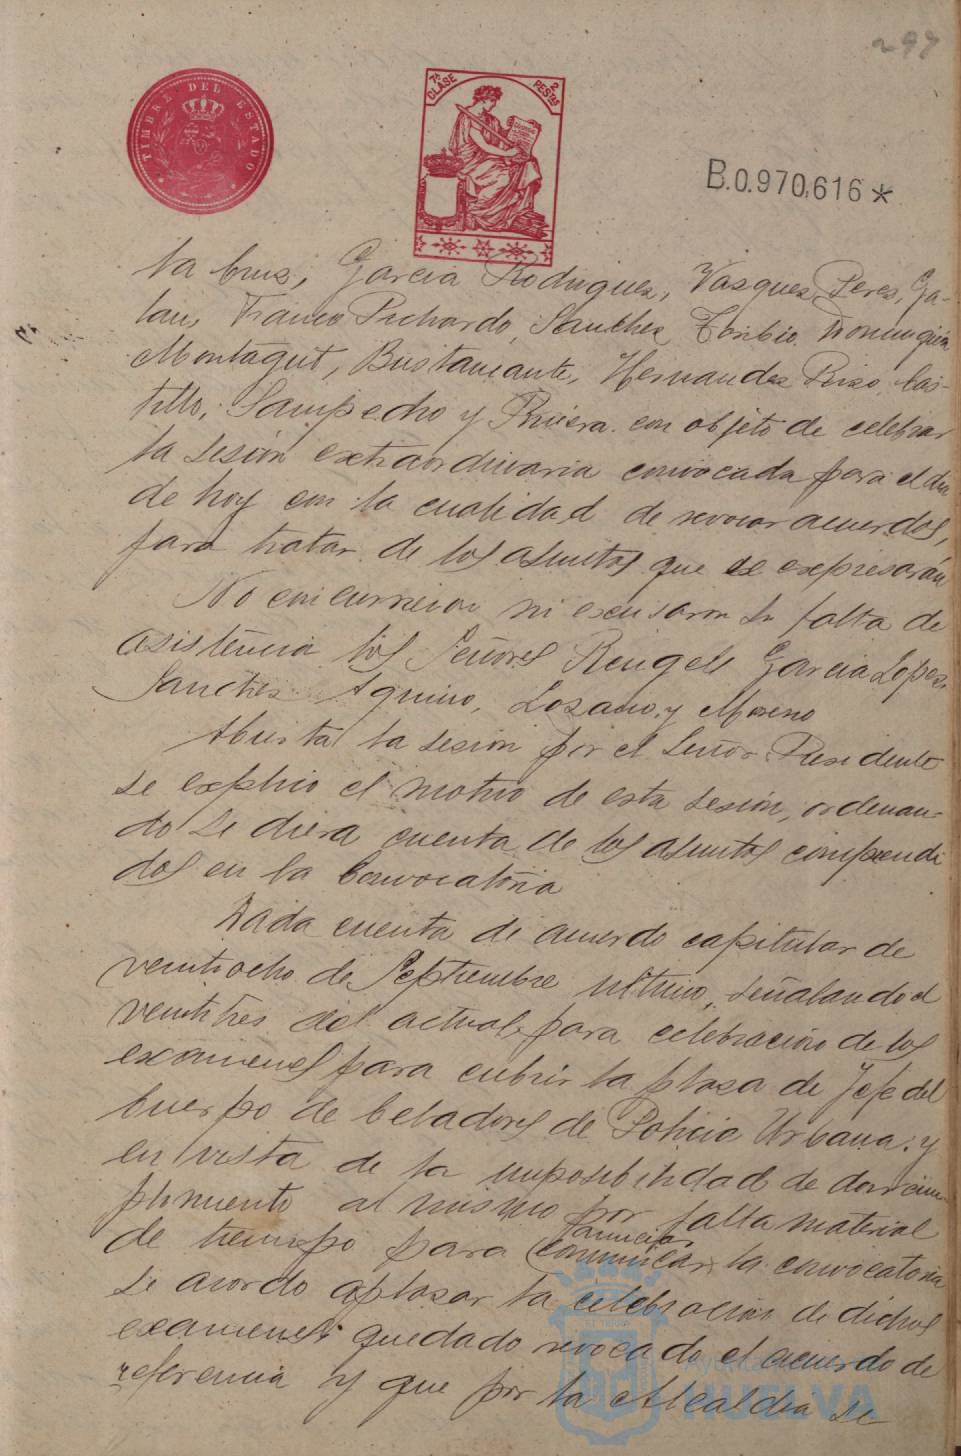 297
TIMBRE DEL ESTADO
7ª CLASE 2 PESETAS
B.0.970,616*
la Cruz, Garcia Rodriguez, Vazquez Perez, Ga-
lan, Franco Pichardo, Sanchez Toribio, Dominguez
Montagut, Bustamante, Hernandez Pinzo, Cas-
tillo, Sampedro y Rivera con objeto de celebrar
la sesión extraordinaria convocada para el dia
de hoy con la cualidad de revocar acuerdos,
para tratar de los asuntos que se expresarán
No concurrieron ni excusaron su falta de
asistencia los Señores Rengel, Garcia Lopez,
Sanchez Aquino, Lozano, y Moreno
Abierta la sesión por el Señor Presidente
se explico el motivo de esta sesión, ordenan-
do se diera cuenta de los asuntos comprendi
dos en la Convocatoria
Dada cuenta de acuerdo capitular de
veintiocho de Septiembre ultimo, señalando el
veintitres del actual para celebracion de los
examenes para cubrir la plaza de Jefe del
Cuerpo de Celadores de Policia Urbana, y
en vista de la imposibilidad de dar cum-
plimiento al mismo por falta material
anunciar
de tiempo para comunicar la convocatoria
se acordo aplazar la celebracion de dichos
examenes quedado revocado el acuerdo de
referencia y que por la Alcaldia se
Ayuntamiento de
HUELVA